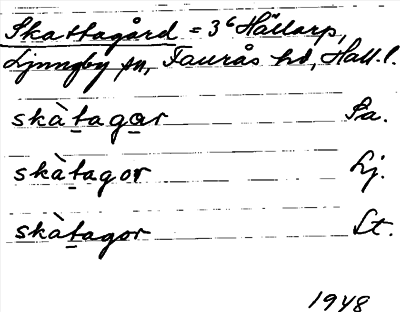 Skattagård = 3⁶ Hällarp,
Ljungby sn, Faurås hd, Hall. l.
skàtagar Pa.
skàtagor Lj.
skàtagor St.
1948